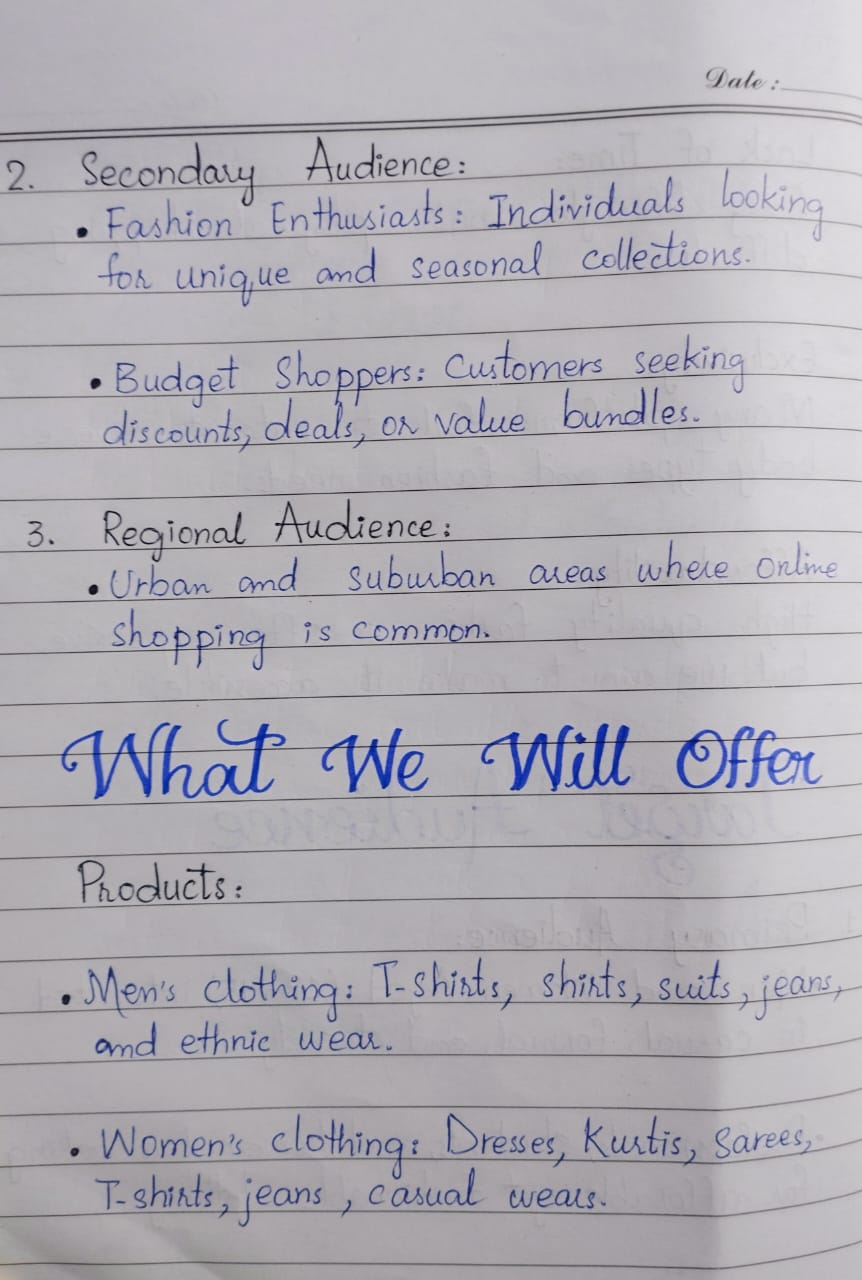 Date :
2. Secondary Audience:
• Fashion Enthusiasts: Individuals looking
for unique and seasonal collections.
• Budget Shoppers: Customers seeking
discounts, deals, or value bundles.
3. Regional Audience:
• Urban and suburban areas where online
shopping is common.
What We Will Offer
Products:
• Men's clothing: T-shirts, shirts, suits, jeans,
and ethnic wear.
• Women's clothing: Dresses, Kurtis, Sarees,
T-shirts, jeans, casual wears.